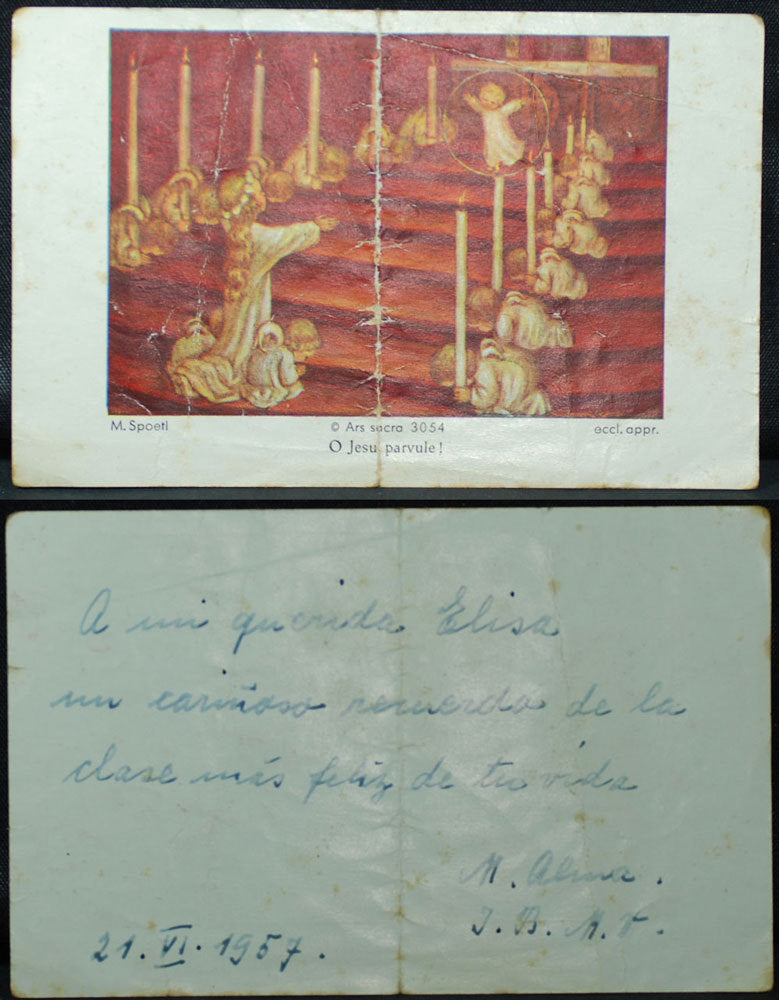 M. Spoetl
© Ars sacra 3054
eccl. appr.
O Jesu parvule!
A mi querida Elisa
un cariñoso recuerdo de la
clase más feliz de tu vida
M. Alma.
I. B. M. V.
21. VI. 1957.